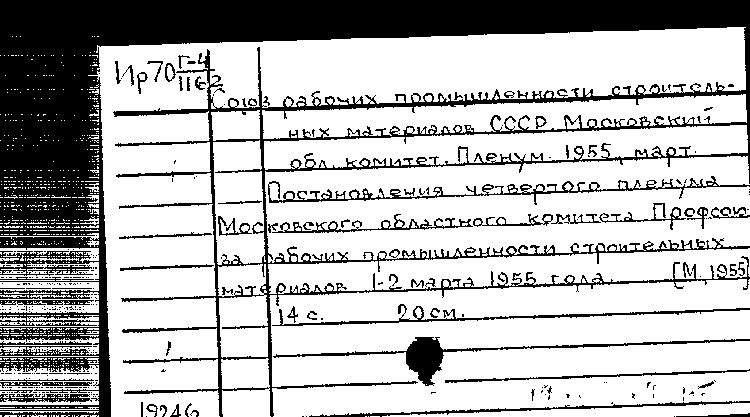 Ир70 Г-4
1162
Союз рабочих промышленности строитель-
ных материалов СССР. Московский
обл. комитет. Пленум. 1955, март.
Постановления четвертого пленума
Московского областного комитета Профсою-
за рабочих промышленности строительных
материалов 1-2 марта 1955 года. [М, 1955]
14 с. 20 см.
19246